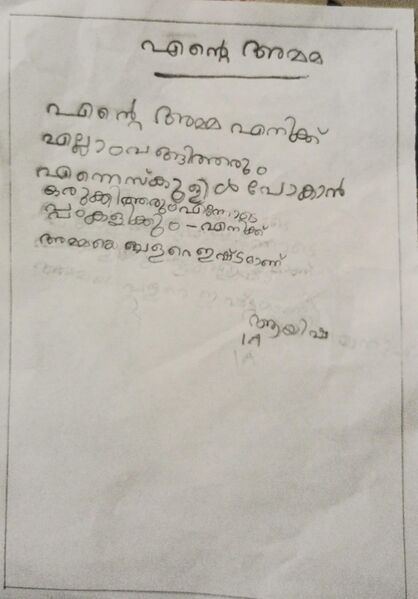 എന്റെ അമ്മ
എന്റെ അമ്മ എനിക്ക്
എല്ലാം വങ്ങിത്തരും
എന്നെ സ്കൂളിൽ പോകാൻ
ഒരുക്കിത്തരും എന്നോടെ
പ്പം കളിക്കും - എനിക്ക്
അമ്മയെ ബളറെ ഇഷ്ടമാണ്
ആയിഷ
1A
1A